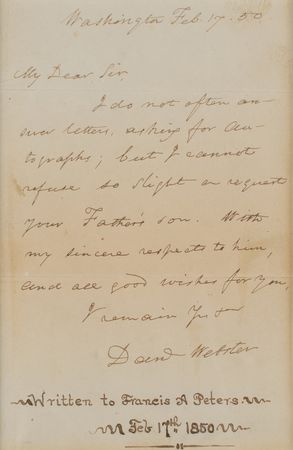 Washington Feb. 17. 50
My Dear Sir,
I do not often an-
swer letters, asking for au-
tographs; but I cannot
refuse so slight a request
your Father's son. With
my sincere respects to him,
and all good wishes for you,
I remain Yrs
Danl Webster
Written to Francis A Peters.
Feb 17th 1850